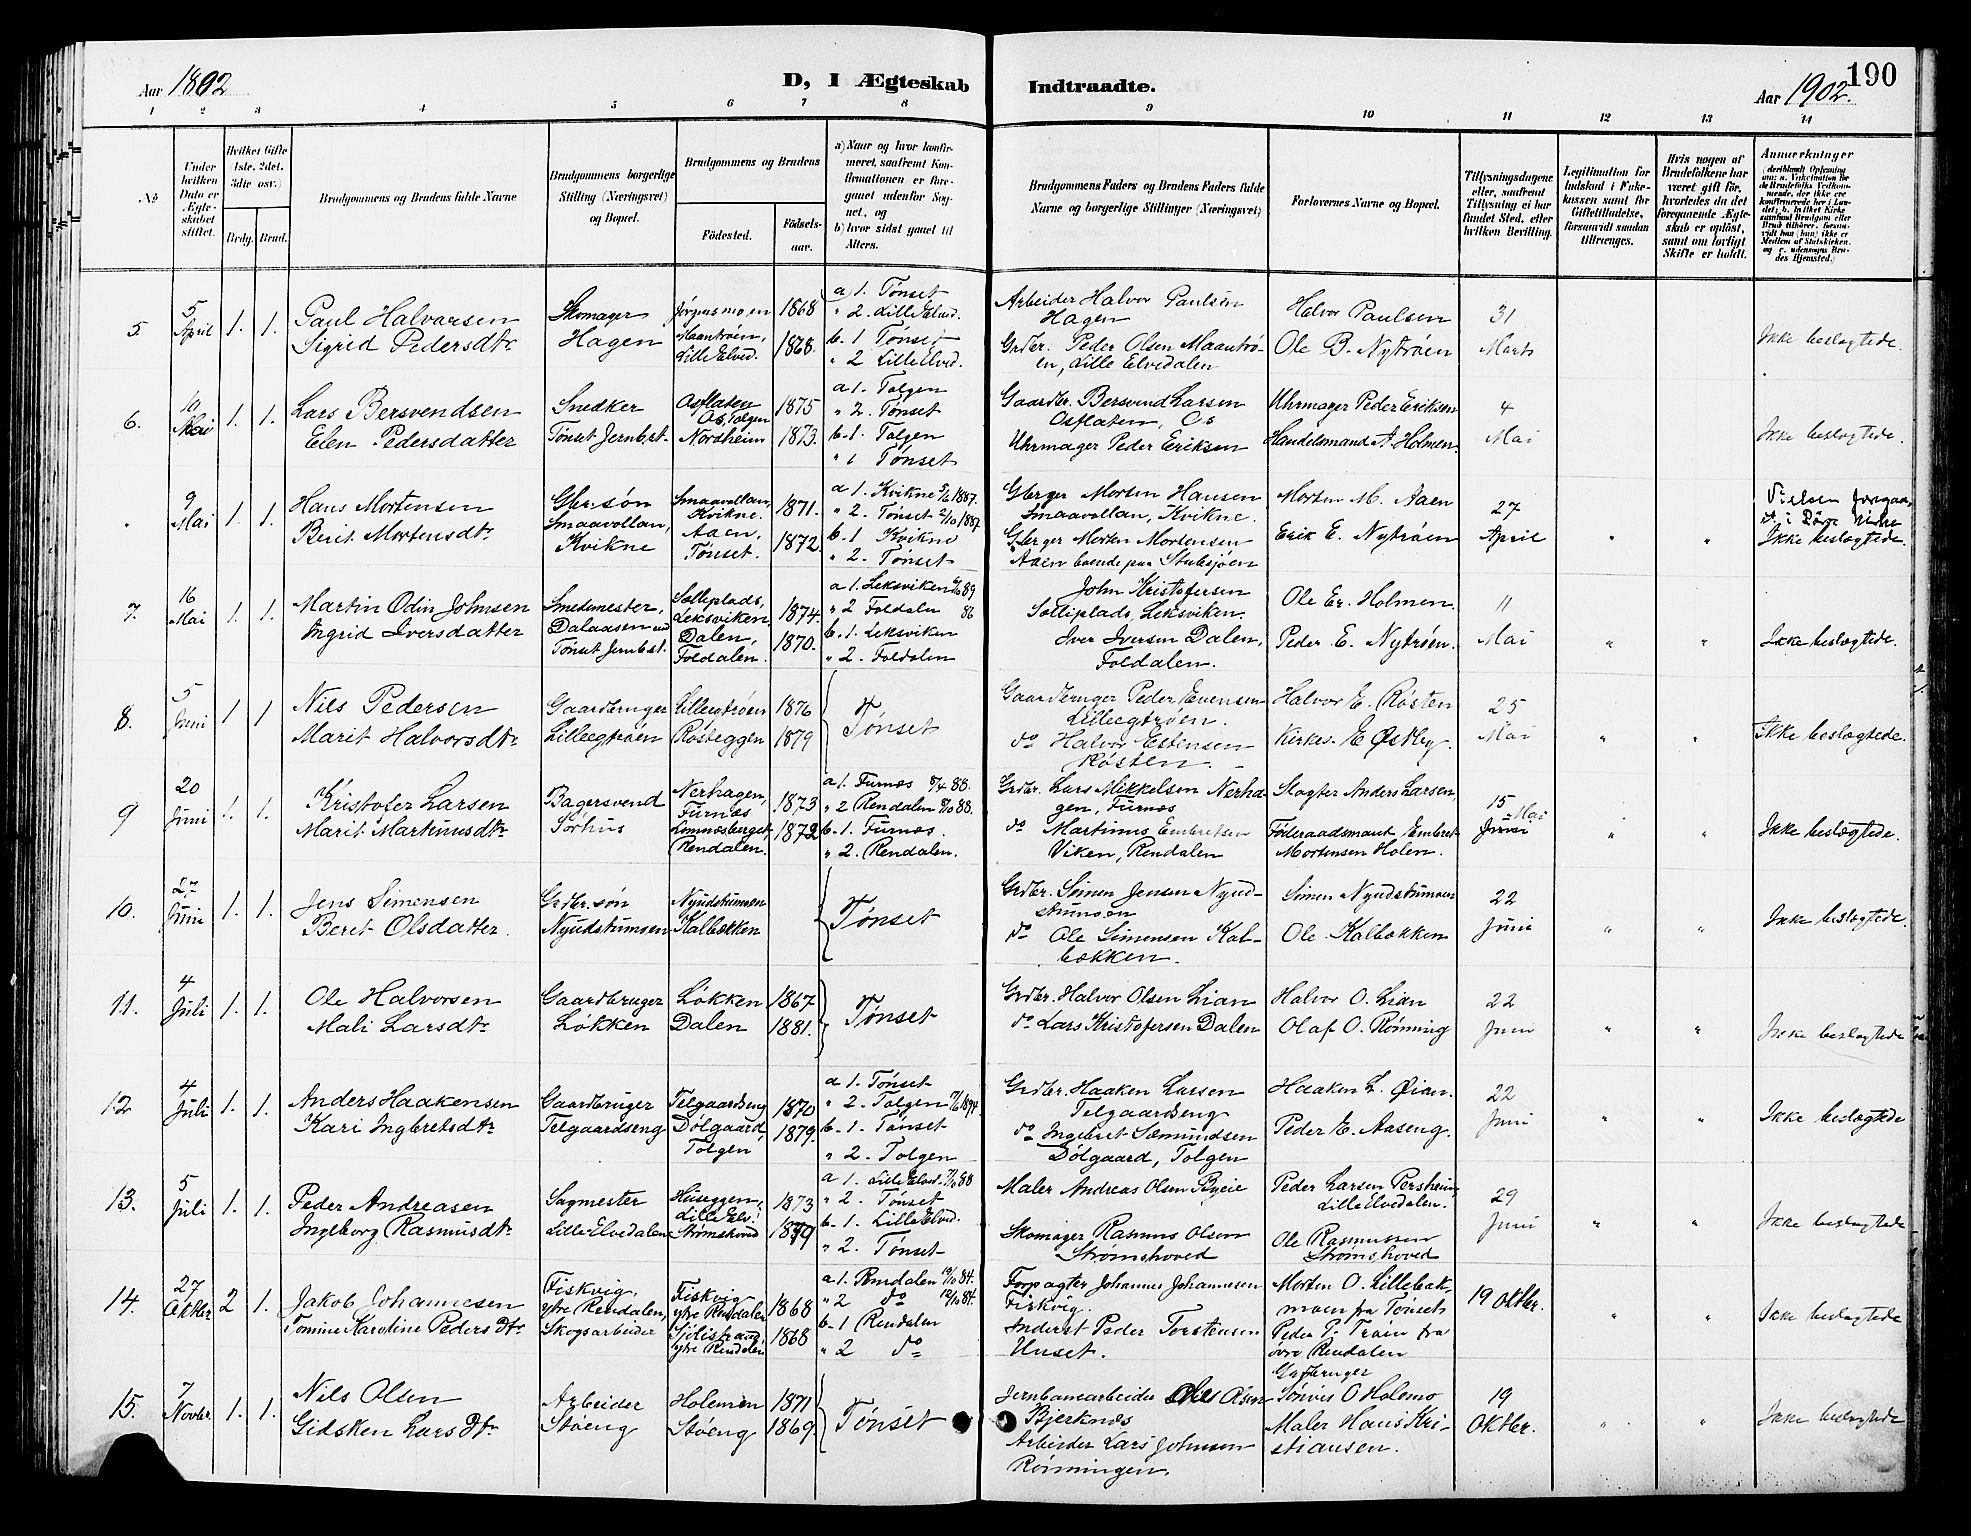 Aar 1892
D, I Ægteskab Indtraadte.
Aar 1902.
190
1 2 3 4 5 6 7 8 9 10 11 12 13 14
No
Under hvilken Dato er Ægteskabet stiftet.
Hvilket Gifte 1ste, 2det, 3die osv.)
Brdg. Brud.
Brudgommens og Brudens fulde Navne
Brudgommens borgerlige Stilling (Næringsvei) og Bopæl.
Brudgommens og Brudens
Födested.
Födselsaar.
a) Naar og hvor konfirmeret, saafremt Konfirmationen er foregaaet udenfor Sognet, og
b) hvor sidst gaaet til Alters.
Brudgommens Faders og Brudens Faders fulde Navne og borgerlige Stillinger (Næringsvei)
Forlovernes Navne og Bopæl.
Tillysningsdagene eller, saafremt Tillysning ei har fundet Sted, efter hvilken Bevilling.
Legitimation for Indskud i Enkekassen samt for Giftetilladelse, forsaavidt saadan tiltrænges.
Hvis nogen af Brudefolkene har været gift før, hvorledes da det foregaaende Ægteskab er oplöst, samt om lovligt Skifte er holdt.
Anmærkninger
5
5 April
1. 1.
Paul Halvorsen
Sigrid Pedersdtr.
Skomager
Hagen
Jørgensmoen
Maantrøen, Lille Elved.
1868
1868.
a) 1. Tønset
" 2. Lille Elvd.
b. 1 Tønset
" 2 Lille Elvd.
Arbeider Halvor Paulsen
Hagen
Grdbr. Peder Olsen Maantrøen, Lille Elvedalen
Halvor Paulsen
Ole B. Nytrøen
31 Marts
Ikke beslægtede.
6.
10 Mai
1. 1.
Lars Bersvendsen
Elen Pedersdatter
Snedker
Tønset Jernb.st.
Osflaten
Os, Tolgen
Nordheim
1875
1873.
a 1. Tolgen
" 2. Tønset
b. 1. Tolgen
" 2 Tønset
Gaardbr. Bersvend Larsen
Osflaten, Os
Uhrmager Peder Eriksen
Uhrmager Peder Eriksen
Handelsmand A. Holmen.
4 Mai
Ikke beslægtede.
"
9 Mai
1. 1.
Hans Mortensen
Berit Mortensdtr.
Gbr. søn
Smaavollan,
Kvikne
Smaavollan, Kvikne.
Aaen, Tønset.
1871.
1872.
a 1. Kvikne 5/6 1887.
" 2. Tønset 2/10 1887
b. 1 Kvikne
" 2. Tønset
Gbrger Morten Hansen
Smaavollan, Kvikne.
Gbrger Morten Mortensen
Aaen boende paa Stubsjøen
Morten M. Aaen
Erik E. Nytrøen
27 April
" "
Vielsen foregaaet i
Ikke beslægtede.
7.
16 Mai
1. 1.
Martin Odin Johnsen
Ingrid Iversdatter
Smedmester,
Dalaasen ved
Tønset Jernb.st.
Sælliplads, Leksviken
Dalen, Foldalen.
1874.
1870.
a 1. Leksviken 89
" 2 Foldalen 86
b. 1. Leksviken
" 2. Foldalen
John Kristofersen
Sælliplads, Leksviken.
Iver Iversen Dalen,
Foldalen.
Ole Er. Holmen.
Peder E. Nytrøen.
11 Mai
" "
Ikke beslægtede.
8.
5 Juni
1 1
Nils Pedersen
Marit Halvorsdtr.
Gaardbruger
Lilleegtrøen
Lilleegtrøen
Røsteggen
1876
1879
Tønset
Gaardbruger Peder Evensen
Lilleegtrøen.
do Halvor Estensen
Røsten.
Halvor E. Røsten
Kirkes. E. Østby.
25 Mai
" "
Ikke beslægtede.
9
20 Juni
1. 1.
Kristofer Larsen
Marit Martinusdtr.
Bagersvend
Sørhus
Nerhagen, Furnæs
Lomnæsberget, Rendalen.
1873
1872
a 1. Furnæs 8/4 88.
" 2 Rendalen 8/10 88.
b. 1. Furnæs.
" 2. Rendalen.
Grdbr. Lars Mikkelsen Nerhagen, Furnæs
do Martinus Embretsen
Viken, Rendalen
Slagter Anders Larsen,
Føderaadsmand Embret
Mortensen Holen.
15 Mai
Juni
" "
Ikke beslægtede.
10.
27 Juni
1. 1.
Jens Simensen
Beret Olsdatter.
Grdbr. søn
Nyudstumoen
Nyudstumoen
Kalbækken
Tønset
Grdbr. Simen Jensen Nyudstumoen
do Ole Simensen Kalbækken.
Simen Nyudstumoen
Ole Kalbækken
22 Juni
" "
Ikke beslægtede.
11.
4 Juli
1. 1.
Ole Halvorsen
Mali Larsdtr.
Gaardbruger
Løkken
Løkken
Dalen
1867
1881.
Tønset
Grdbr. Halvor Olsen Lian
do Lars Kristofersen Dalen
Halvor O. Lian
Olaf O. Rønning
22 Juni
" "
Ikke beslægtede
12
4 Juli
1. 1.
Anders Haakensen
Kari Ingbretsdtr.
Gaardbruger
Telgaardseng
Telgaardseng
Dølgaard, Tolgen
1870
1879.
a 1. Tønset
" 2. Tolgen 1894.
b. 1. Tønset
" 2. Tolgen
Grdbr. Haaken Larsen
Telgaardseng
do Ingebret Sæmundsen
Dølgaard, Tolgen
Haaken L. Øian.
Peder E. Aaseng.
22 Juni
" "
Ikke beslægtede
13.
5 Juli
1. 1.
Peder Andreasen
Ingeborg Rasmusdtr.
Sagmester
Lille Elvedalen
Huseggen, Lille Elv.
Strømshoved
1873
1879
a 1. Lille Elvd. 7/10 88
" 2. Tønset
b. 1. Lille Elvd.
" 2. Tønset
Maler Andreas Olsen Byeie
Skomager Rasmus Olsen
Strømshoved
Peder Larsen Persheim,
Lille Elvedalen.
Ole Rasmussen
Strømshoved
29 Juni
" "
Ikke beslægtede
14.
27 Oktbr
2 1.
Jakob Johannesen
Tomine Karoline Pedersdtr.
Fiskvig,
ytre Rendalen,
Skogsarbeider
Fiskvig
ytre Rendalen
Sjølistrand,
ytre Rendalen
1868
1868
a 1. Rendalen 12/10 84.
" 2 do 12/10 84.
b. 1 Rendalen
" 2 do
Forpagter Johannes Johannesen
Fiskvig.
Inderst Peder Torstensen
Unset.
Morten O. Lillebakmoen fra Tønset
Peder P. Trøen fra
øvre Rendalen
19 Oktbr.
" "
Ikke beslægtede
15.
7 Novbr.
1. 1.
Nils Olsen
Gidsken Larsdtr.
Arbeider
Støeng
Holmen
Støeng
1871
1869.
Tønset
Jernbanearbeider Ole Olsen
Bjerknæs
Arbeider Lars Johnsen
Rønningen.
Gaardbruger
O Holmo
Maler Hans Kristiansen.
19 Oktbr.
" "
Ikke beslægtede